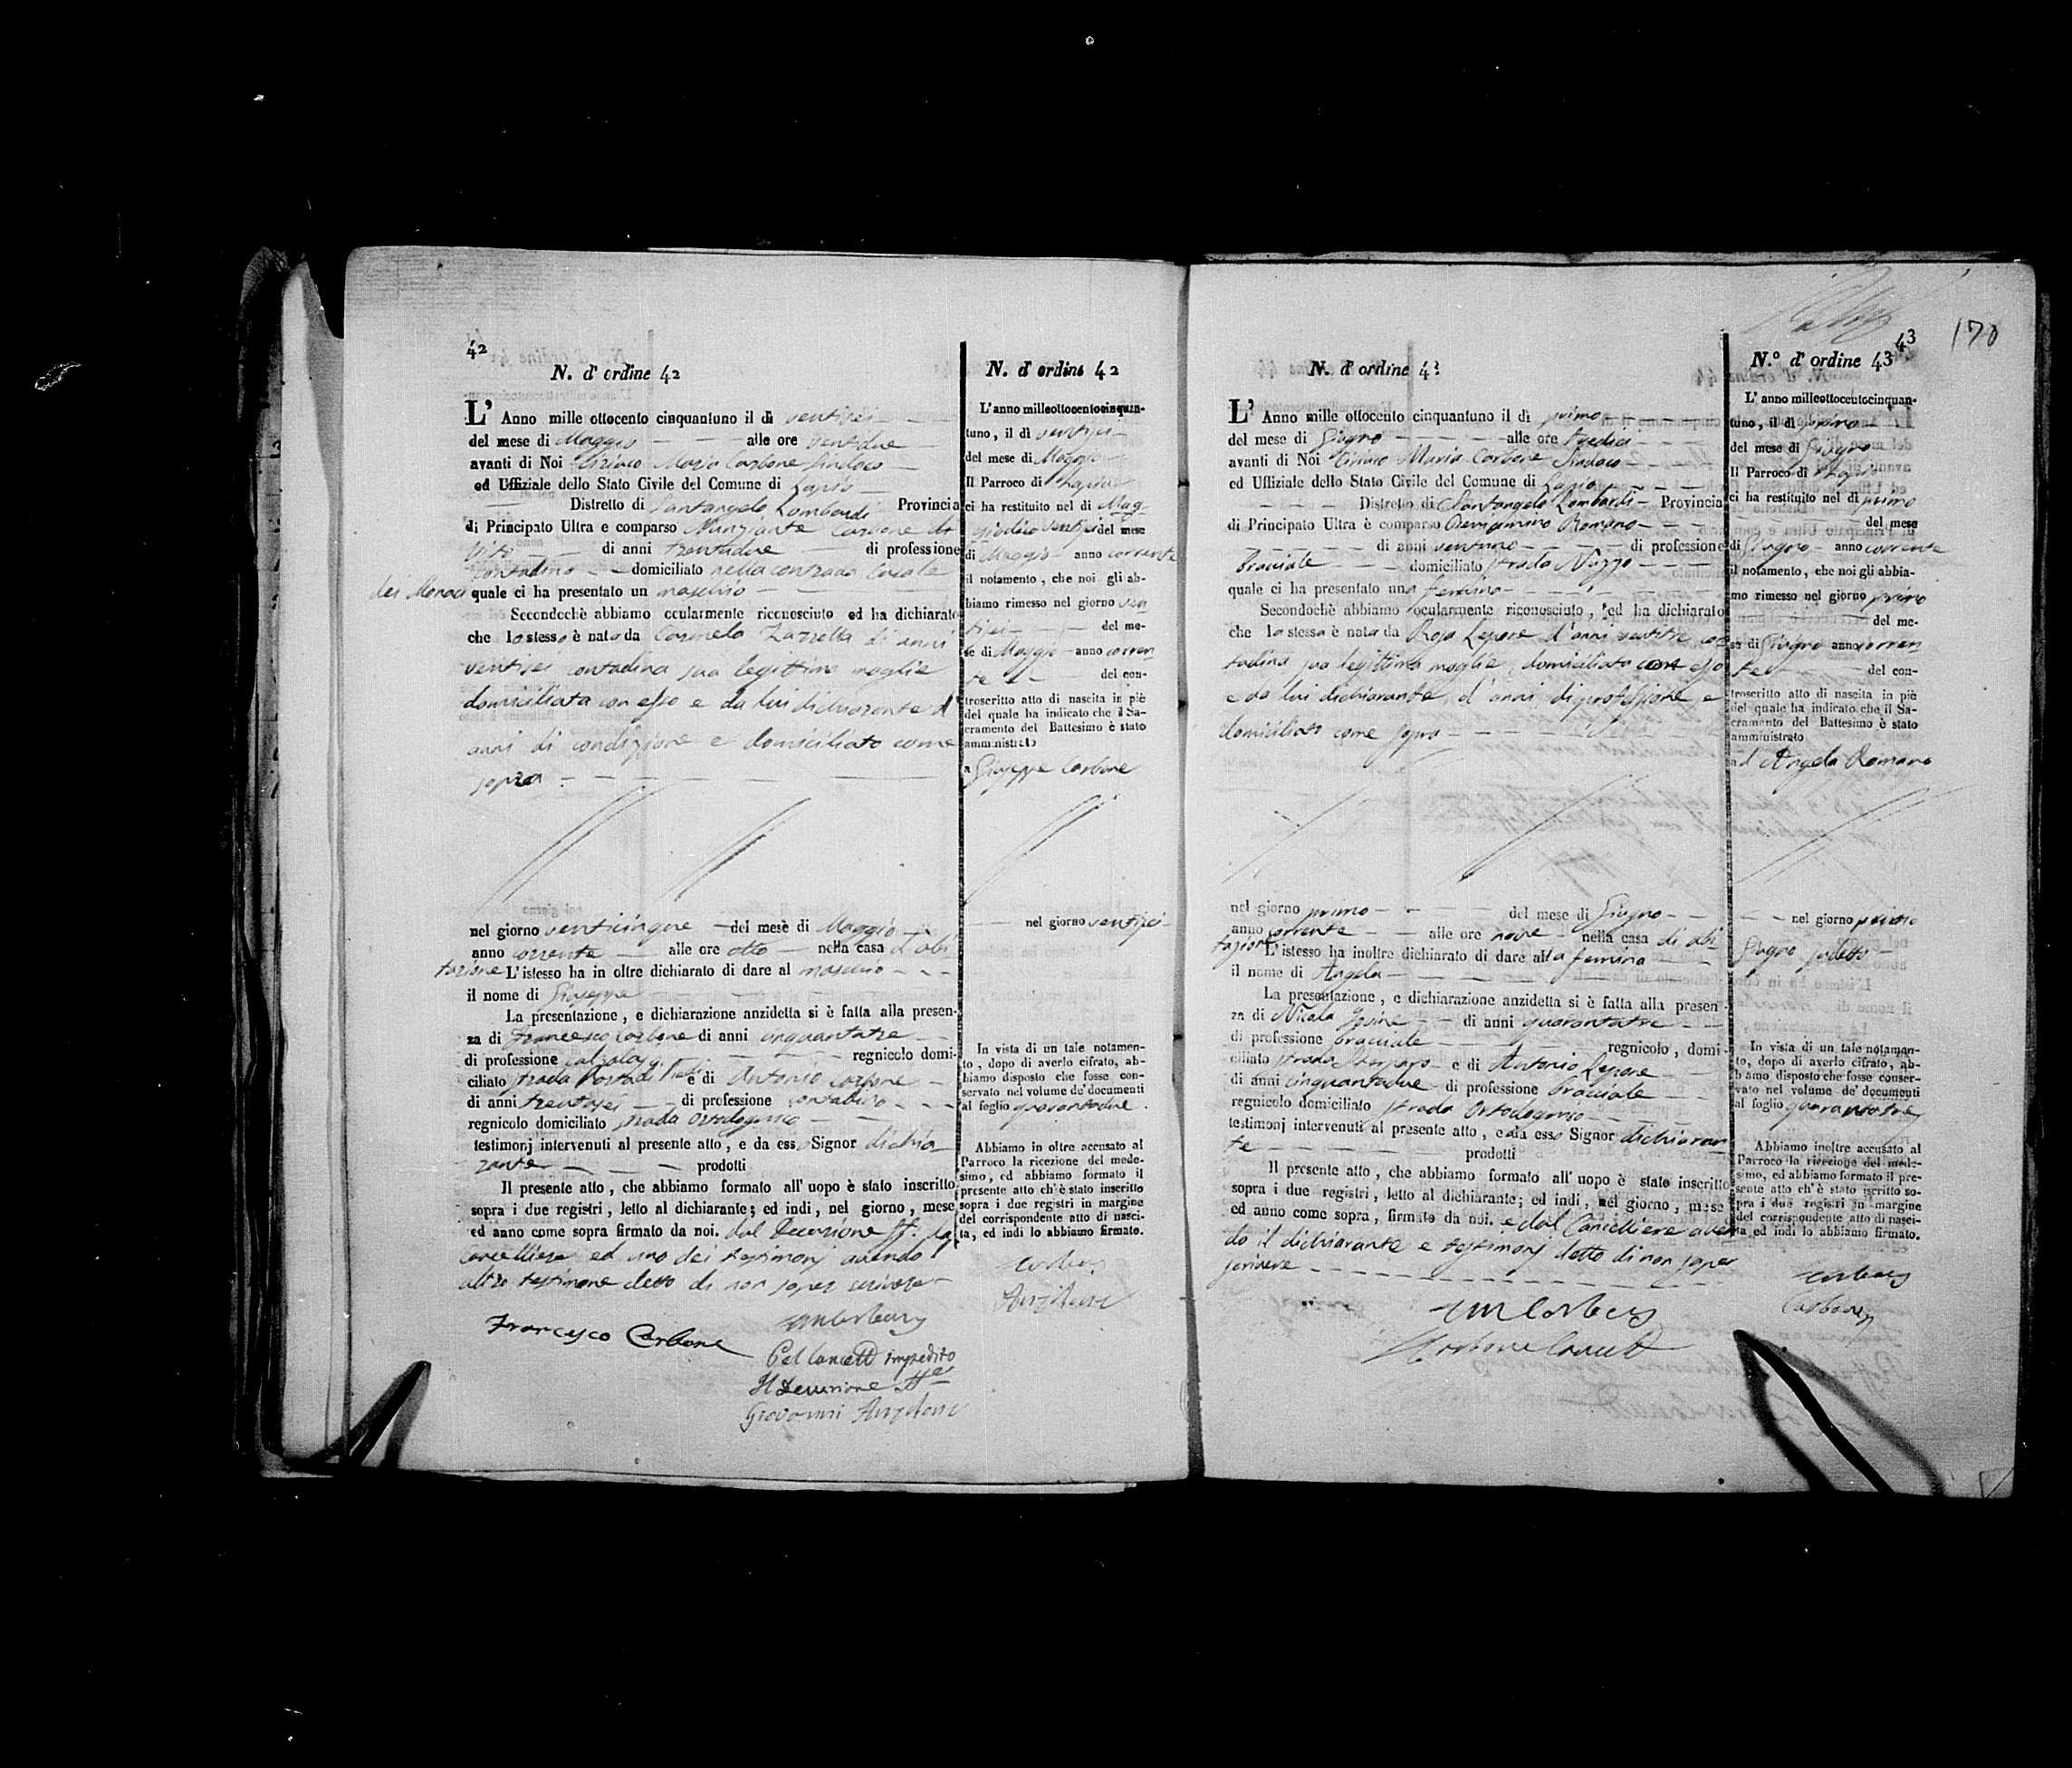 42
N. d' ordine 42
L' Anno mille ottocento cinquantuno il dì ventisei
del mese di Maggio alle ore ventidue
avanti di Noi Ciriaco Maria Carbone Sindaco
ed Uffiziale dello Stato Civile del Comune di Lapio
Distretto di Santangelo Lombardi Provincia
di Principato Ultra e comparso Nunziante Carbone di
Vito di anni trentadue di professione
Contadino domiciliato nella contrada Casale
dei Monaci quale ci ha presentato un maschio
Secondochè abbiamo ocularmente riconosciuto ed ha dichiarato
che lo stesso è nato da Carmela Zazzetta di anni
ventisei contadina sua legittima moglie
domiciliata con esso e da lui dichiarante d'
anni di condizione e domiciliato come
sopra
nel giorno venticinque del mese di Maggio
anno corrente alle ore otto nella casa d'abi
tazione L'istesso ha in oltre dichiarato di dare al maschio
il nome di Giuseppe
La presentazione, e dichiarazione anzidetta si è fatta alla presen-
za di Francesco Carbone di anni cinquantatre
di professione calzolajo regnicolo domi-
ciliato strada Porta di e di Antonio Carbone
di anni trentasei di professione contadino
regnicolo domiciliato strada Ortodonico
testimonj intervenuti al presente atto, e da esso Signor dichia
rante prodotti
Il presente atto, che abbiamo formato all' uopo è stato inscritto
sopra i due registri, letto al dichiarante; ed indi, nel giorno, mese
ed anno come sopra firmato da noi. dal Decurione ff. da
Cancelliere ed uno dei testimonj avendo l'
altro testimone detto di non saper scrivere
Francesco Carbone
Pel Cancell impedito
Il Decurione ff
Giovanni
N. d' ordine 42
L'anno milleottocentocinquan-
tuno, il dì ventisei
del mese di Maggio
Il Parroco di Lapio
ci ha restituito nel dì Mag-
gio dico ventisei del mese
di Maggio anno corrente
il notamento, che noi gli ab-
biamo rimesso nel giorno ven
tisei del me-
se di Maggio anno corren
te del con-
troscritto atto di nascita in piè
del quale ha indicato che il Sa-
cramento del Battesimo è stato
amministrato
a Giuseppe Carbone
nel giorno ventisei
In vista di un tale notamen-
to, dopo di averlo cifrato, ab-
biamo disposto che fosse con-
servato nel volume de' documenti
al foglio quarantadue.
Abbiamo in oltre accusato al
Parroco la ricezione del mede-
simo, ed abbiamo formato il
presente atto ch' è stato inscritto
sopra i due registri in margine
del corrispondente atto di nasci-
ta, ed indi lo abbiamo firmato.
43
170
N. d' ordine 43
L' Anno mille ottocento cinquantuno il dì primo
del mese di Giugno alle ore tredici
avanti di Noi Ciriaco Maria Carbone Sindaco
ed Uffiziale dello Stato Civile del Comune di Lapio
Distretto di Santangelo Lombardi Provincia
di Principato Ultra è comparso Beniamino Romano
di anni ventuno di professione
Bracciale domiciliato strada Nuzzo
quale ci ha presentato una femina
Secondochè abbiamo ocularmente riconosciuto, ed ha dichiarato
che la stessa è nata da Rosa Lepore d'anni ventitre con
tadina sua legittima moglie, domiciliata con esso
e da lui dichiarante, d'anni, di professione e
domiciliato come sopra
nel giorno primo del mese di Giugno
anno corrente alle ore nove nella casa di abi
tazione L'istesso ha inoltre dichiarato di dare alla femina
il nome di Angela
La presentazione, e dichiarazione anzidetta si è fatta alla presen-
za di Nicola Iovine di anni quarantatre
di professione bracciale regnicolo, domi-
ciliato strada e di Antonio Lepore
di anni cinquantadue di professione bracciale
regnicolo domiciliato strada Ortodonico
testimonj intervenuti al presente atto, e da esso Signor dichiaran
te prodotti
Il presente atto, che abbiamo formato all' uopo è stato inscritto
sopra i due registri, letto al dichiarante; ed indi, nel giorno, mese
ed anno come sopra, firmato da noi. e dal Cancelliere aven
do il dichiarante e testimonj detto di non saper
scrivere
N.º d' ordine 43
L' anno milleottocentocinquan-
tuno, il dì primo
del mese di Giugno
Il Parroco di Lapio
ci ha restituito nel dì primo
del mese
di Giugno anno corrente
il notamento, che noi gli abbia-
mo rimesso nel giorno primo
del me-
se di Giugno anno corren
te del con-
troscritto atto di nascita in piè
del quale ha indicato che il Sa-
cramento del Battesimo è stato
amministrato
ad Angela Romano
nel giorno primo
Giugno sudetto
In vista di un tale notamen-
to, dopo di averlo cifrato, ab-
biamo disposto che fosse conser-
vato nel volume de' documenti
al foglio quarantatre
Abbiamo inoltre accusato al
Parroco la ricezione del mede-
simo, ed abbiamo formato il pre-
sente atto ch' è stato iscritto so-
pra i due registri in margine
del corrispondente atto di nasci-
ta ed indi lo abbiamo firmato.